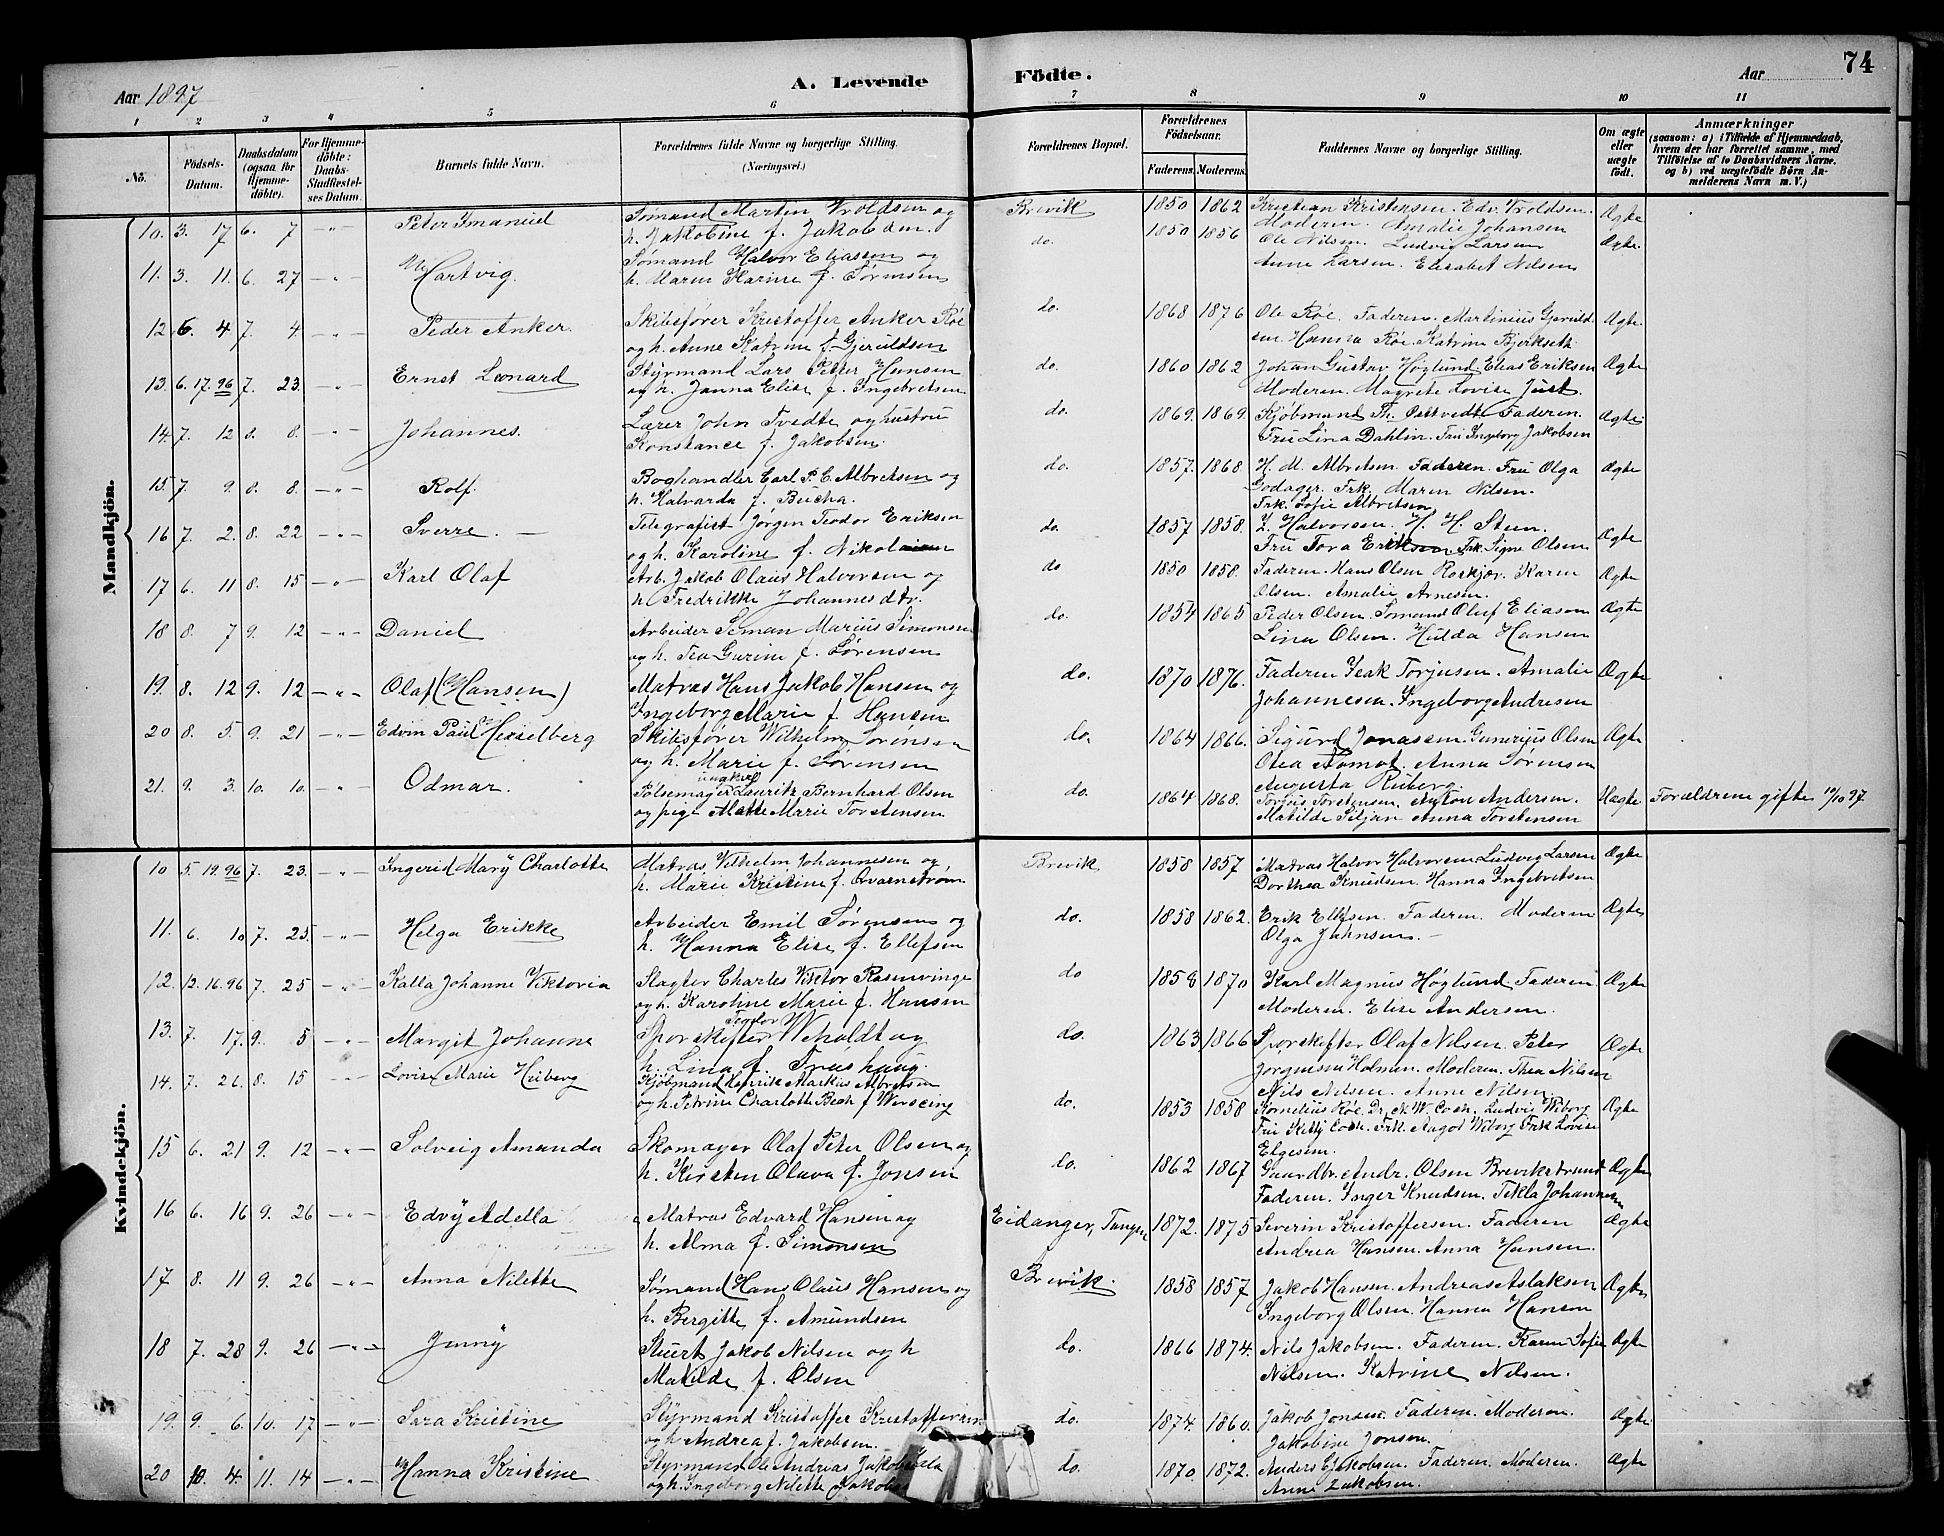 74
Aar 1897 A. Levende Fødte. Aar
1 2 3 4 5 6 7 8 9 10 11
No. Fødsels-Datum. Daabsdatum (ogsaa for Hjemmedøbte). For Hjemmedøbte: Daabs-Stadfæstelses Datum. Barnets fulde Navn. Forældrenes fulde Navne og borgerlige Stilling. (Næringsvei.) Forældrenes Bopæl. Forældrenes Fødselsaar. Faderens. Moderens. Faddernes Navne og borgerlige Stilling. Om ægte eller uægte født. Anmærkninger (saasom: a) i Tilfælde af Hjemmedaab, hvem der har forrettet samme, med Tilføielse af to Daabsvidners Navne. og b) ved uægtefødte Børn Anmelderens Navn m. V.)
Mandkjøn.
10. 3. 17 6. 7 — „ — Peter Imanuel Sømand Martin Troldsen og Brevik 1850 1862 Kristian Kristensen. Edv. Troldsen. Ægte
h. Jakobine f. Jakobsen. Moderen. Amalie Johansen
11. 3. 11. 6. 27 — „ — Hartvig. Sømand Halvor Eliassen og do. 1850 1856 Ole Nilsen. Ludvig Larsen Ægte
h. Maren Karine f. Sørensen Anne Larsen. Elisabet Nilsen
12. 6. 4. 7. 4. — „ — Peder Anker. Skibsfører Kristoffer Anker Røe do. 1868 1876 Ole Røe. Faderen. Martinius Gjeruldsen Ægte
og h. Anne Katrine f. Gjeruldsen Hanna Røe. Katrine Bjerkseth
13. 6. 17. 96 7. 23. — „ — Ernst Leonard Styrmand Lars Peter Hansen do. 1860 1862 Johan Gustav Høglund Elias Eriksen Ægte
og h. Janna Elise f. Ingebretsen Moderen. Magrete Lovise Just
14. 7. 12 8. 8. — „ — Johannes. Lærer John Tvedte og hustru do. 1869. 1869. Kjøbmand Th. Faderen. Ægte
Konstance f. Jakobsen. Fru Lina Dahlin. Fru Ingeborg Jakobsen
15. 7. 9. 8. 8. — „ — Rolf. Boghandler Carl P. C. Albretsen og do. 1857. 1868. H. M. Albretsen. Faderen. Fru Olga Ægte
h. Halvarda f. Bucha. Godager. Frk. Maren Nilsen.
Frk. Sofie Albretsen
16 7. 2. 8. 22 — „ — Sverre. — Telegrafist Jørgen Teodor Eriksen do. 1857 1858. Z. Halvorsen. H. H. Steen. Ægte
og h. Karoline f. Nikolaisen Fru Tora Eriksen Frk. Signe Olsen
17 6. 11 8. 15 — „ — Karl Olaf Arb. Jakob Olaus Halvorsen og do 1850 1858. Faderen. Hans Olsen Roskjær. Karen Ægte
h. Fredrikke Johannesdtr. Olsen. Amalie Arnesen.
18 8. 7 9. 12 — „ — Daniel Arbeider Simon Marius Simonsen do. 1854 1865 Peder Olsen. Sømand Oluf Eliasen Ægte
og h. Tea Gurine f. Sørensen Lina Olsen. Hulda Hansen
19. 8. 12 9. 12 — „ — Olaf (Hansen) Matros Hans Jakob Hansen og do. 1870 1876. Faderen Isak Torjusen. Amalie Ægte
Ingeborg Marie f. Hansen Johannesen. Ingeborg Andresen
20 8. 5. 9. 21 — „ — Edvin Paul Hesselberg Skibsfører Wilhelm Sørensen do. 1864 1866. Sigurd Jonassen. Gunerius Olsen Ægte
og h. Marie f. Sørensen Otea Aamot. Anna Sørensen
Augusta Ruberg.
21. 9. 3. 10. 10. — „ — Odmar. Pølsemager ungkarl Lauritz Bernhard Olsen do. 1864 1868. Torjus Torstensen. Anton Andersen. Uægte Forældrene gifte 10/10 97
og pige Mathe Marie Torstensen Matilde Piljan Anna Torstensen
Kvindekjøn.
10 5. 19. 96 7. 23. — „ — Ingerid Mary Charlotte Matros Vilhelm Johannesen og Brevik 1858 1857 Matros Halvor Halvorsen Ludvig Larsen Ægte
h. Marie Kristine f. Qvarnstrøm Dorthea Knudsen. Hanna Ingebretsen
11. 6. 10 7. 25. — „ — Helga Erikke Arbeider Emil Sørensen og do. 1858 1862. Erik Ellefsen. Faderen. Moderen Ægte
h. Hanna Elise f. Ellefsen Olga Jahnsen. —
12. 12. 16. 96 7. 25 — „ — Kalla Johanne Viktoria Slagter Charles Viktor Rasmvinge do 1858 1870 Karl Magnus Høglund. Faderen Ægte
og h. Karoline Marie f. Hansen Moderen. Elise Andersen.
13. 7. 17. 9. 5 — „ — Margit Johanne Sporskifter Teodor Weholdt og do. 1863 1866 Sporskifter Olaf Nilsen. Peter Ægte
h. Lina f. Jørgensen Holmen. Moderen. Thea Nilsen
Nils Nilsen. Anne Nilsen
14. 7. 26. 8. 15 — „ — Lovise Marie Heiberg Kjøbmand Henrik Markus Albretsen do. 1853 1858 Kornelius Røe. Dr. N. W. Coch. Ludvig Wiborg Ægte
og h. Petrine Charlotte Bech f. Fru Kitty Coch. Frk. Aagot Wiborg Frk. Lovise
Elgesem.
15 6. 21 9. 12 — „ — Solveig Amanda Skomager Olaf Peter Olsen og do. 1862 1867 Gaardbr. Andr. Olsen Brevikstrand Ægte
h. Kirsten Olava f. Jonsen Faderen. Inger Knudsen. Tekla Johannesen
16 6. 16 9. 26 — „ — Edvy Adella Matros Edvard Hansen og Eidanger, Tangen 1872. 1875 Severin Kristoffersen. Faderen Ægte
h. Alma f. Simonsen Andrea Hansen. Anna Hansen.
17 8. 11 9. 26 — „ — Anna Nilette Sømand Hans Olaus Hansen og Brevik. 1858 1857 Jakob Hansen. Andreas Aslaksen Ægte
h. Bergitte f. Amundsen Ingeborg Olsen. Hanna Hansen
18 7. 28 9. 26 — „ — Jenny Stuert Jakob Nilsen og h do. 1866 1874. Nils Jakobsen. Faderen. Karen Sofie Ægte
Matilde f. Olsen Nilsen. Katrine Nilsen.
19. 9. 6. 10. 17 — „ — Sara Kristine Styrmand Kristoffer Kristoffersen do. 1874. 1860. Jakob Jonsen. Faderen. Moderen. Ægte
og h. Andrea f. Jakobsen. Jakobine Jonsen.
20 10. 4 11. 14 — „ — Hanna Kristine Styrmand Ole Andreas do. 1870. 1872. Anders Jakobsen. Faderen. Moderen. Ægte
og h. Ingeborg Nilette Anne Jakobsen.